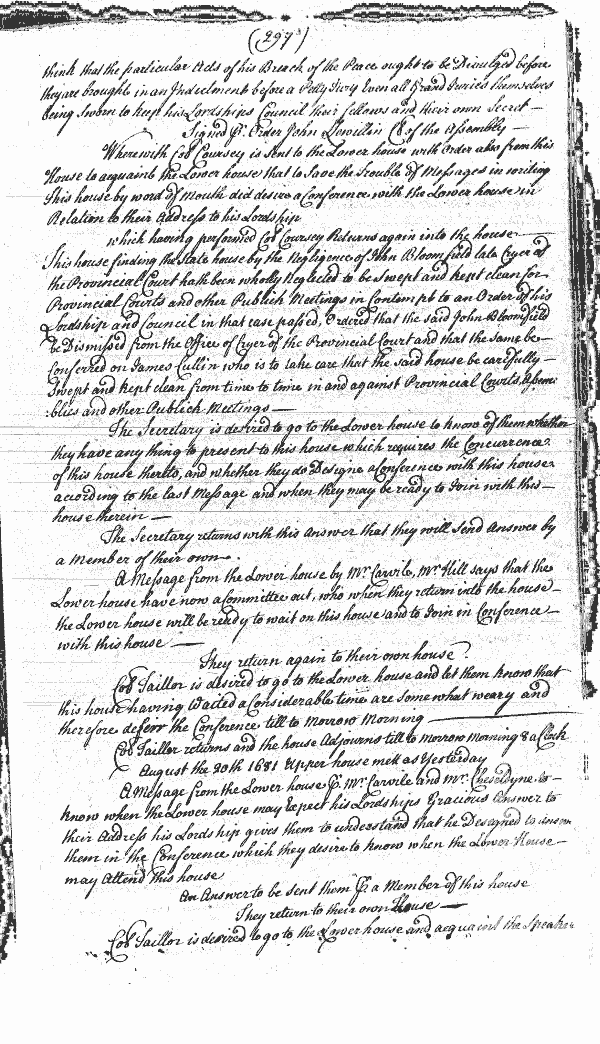 (297)
think that the particular Acts of his Breach of the Peace ought to be Divulged before
they are brought in an Indictment before a Petty Jury Even all Grand Juries themselves
being Sworn to keep his Lordships Council their fellows and their own Secret —
Signed p. Order John Llewillin Cl of the Assembly —
Wherewith Col Coursey is sent to the Lower house with Order also from this
House to acquaint the Lower house that to Save the Trouble of Messages in writing
This house by word of Mouth did desire a Conference with the Lower house in
Relation to their Address to his Lordship
which having performed Col Coursey Returns again into the house —
This house finding the State house by the Negligence of John Bloomfield late Cryer of
the Provincial Court hath been wholly Neglected to be Swept and kept clean for
Provincial Courts and other Publick Meetings in Contempt to an Order of his
Lordship and Council in that case passed, Ordered that the said John Bloomfield
be Dismissed from the Office of Cryer of the Provincial Court and that the same be —
Conferred on James Cullin who is to take care that the said house be carefully —
Swept and kept clean from time to time in and against Provincial Courts, Assem
:blies and other Publick Meetings —
The Secretary is desired to go to the Lower house to know of them whether
they have any thing to present to this house which requires the Concurrence
of this house thereto, and whether they do Designe a Conference with this house
according to the last Message and when they may be ready to Join with this —
house therein —
The Secretary returns with this Answer that they will send Answer by
a Member of their own.
A Message from the Lower house by Mr. Carvile, Mr. Hill says that the
Lower house have now a Committee out, who when they return into the house —
the Lower house will be ready to wait on this house and to Join in Conference —
with this house —
They return again to their own house.
Col Taillor is desired to go to the Lower house and let them know that
this house having Waited a Considerable time are somewhat weary and
therefore deferr the Conference till to Morrow Morning —
Col Taillor returns and the house Adjourns till to Morrow Morning 8 a Clock
August the 20th 1681 Upper house mett as Yesterday
A Message from the Lower house p. Mr. Carvile and Mr. Cheseldyne to —
know when the Lower house may Expect his Lordships Gracious Answer to
their Address his Lordship gives them to understand that he Designed to answer
them in the Conference which they desire to know when the Lower House —
may Attend this house
An Answer to be sent them p. a Member of this house
They return to their own House —
Col Taillor is desired to go to the Lower house and acquaint the Speaker